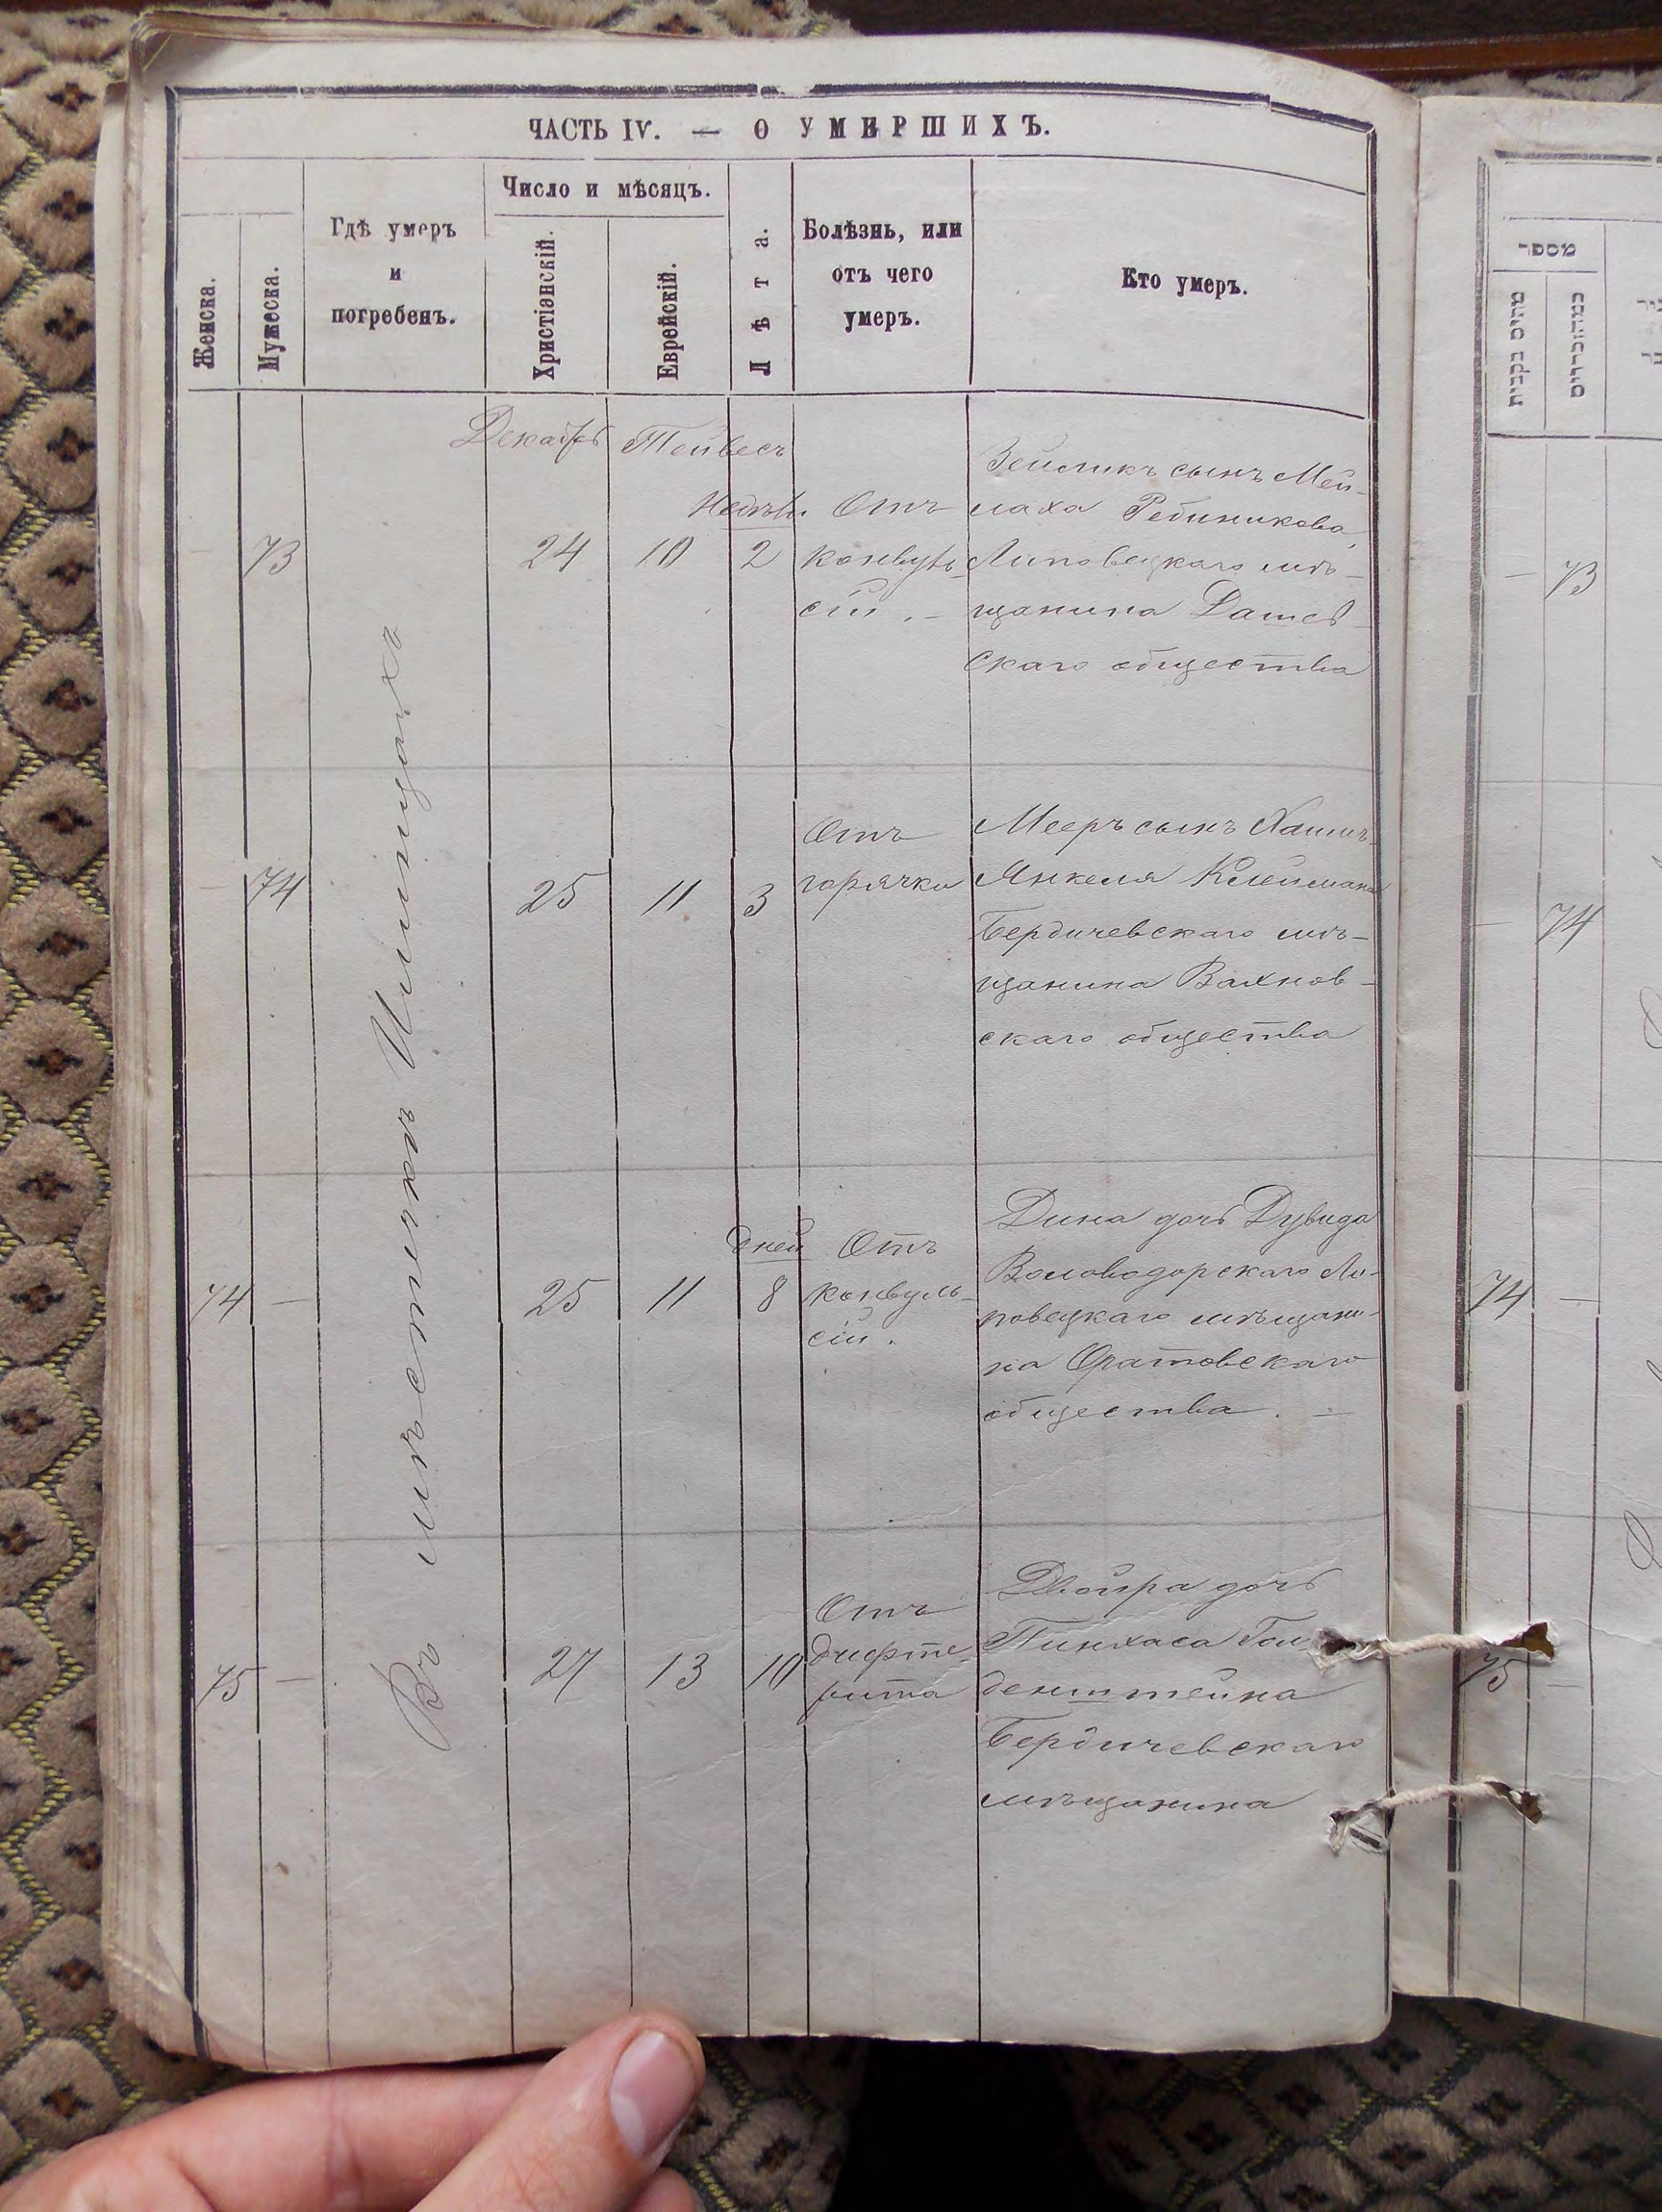 ЧАСТЬ IV. — О УМЕРШИХЪ.
Женска.
Мужеска.
Гдѣ умеръ
и
погребенъ.
Число и мѣсяцъ.
Христіанскій.
Еврейскій.
Лѣта.
Болѣзнь, или
отъ чего
умеръ.
Кто умеръ.
Въ мѣстечкѣ Илинцахъ
Декабрь Тейвесъ
— 73 24 10
Недѣль
2
Отъ
конвуль-
сій . –
Зейликъ сынъ Мей-
лаха
Липовецкаго мѣ-
щанина Дашев-
скаго общества
— 74 25 11 3
Отъ
горячки
Мееръ сынъ
Янкеля Клеймана
Бердичевскаго мѣ-
щанина Вахнов-
скаго общества
74 — 25 11
дней
8
Отъ
конвуль-
сіи .
Дина дочь Дувида
Воловодорскаго Ли-
повецкаго мѣщани-
на Оратовскаго
общества . –
75 — 27 13 10
Отъ
дифте-
рита
Двойра дочь
Пинхаса Гол-
денштейна
Бердичевскаго
мѣщанина
מספר
— 73
— 74
74 —
75 —